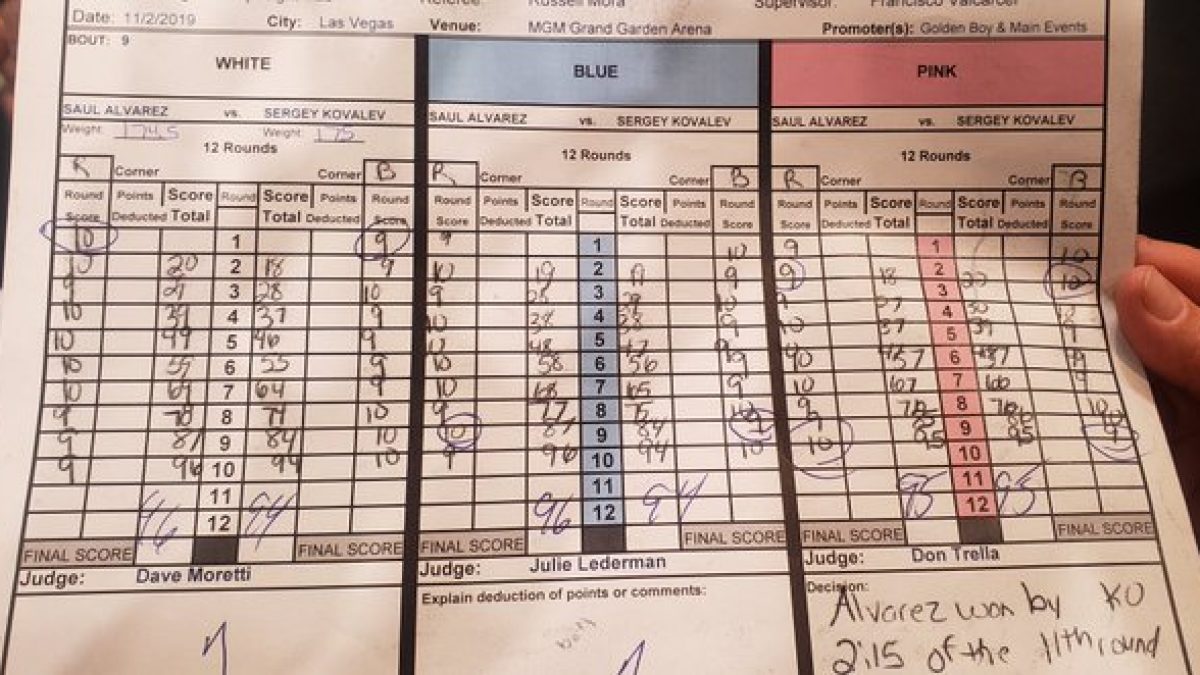 Referee: Russell Mora Supervisor: Francisco Valcarcel
Date: 11/2/2019 City: Las Vegas Venue: MGM Grand Garden Arena Promoter(s): Golden Boy & Main Events
BOUT: 9
WHITE BLUE PINK
SAUL ALVAREZ vs. SERGEY KOVALEV SAUL ALVAREZ vs. SERGEY KOVALEV SAUL ALVAREZ vs. SERGEY KOVALEV
Weight: 174.5 Weight: 175
12 Rounds 12 Rounds 12 Rounds
R Corner Corner B R Corner Corner B R Corner Corner B
Round Points Score Round Score Points Round Round Points Score Round Score Points Round Round Points Score Round Score Points Round
Score Deducted Total Total Deducted Score Score Deducted Total Total Deducted Score Score Deducted Total Total Deducted Score
10 1 9 9 1 10 9 1 10
10 20 2 18 9 10 19 2 9 9 18 2 10
9 3 28 10 9 3 10 9 3
10 39 4 37 9 10 38 4 38 9 10 37 4 39
10 49 5 46 9 10 48 5 9 5
10 59 6 55 9 10 58 6 56 9 10 57 6 9
10 69 7 64 9 10 68 7 65 9 10 67 7 9
9 78 8 74 10 9 77 8 75 10 9 76 8 76 10
9 87 9 84 10 10 87 9 84 9 9
9 96 10 94 10 9 96 10 94 10 10 95 10 95 9
11 11 11
96 12 94 96 12 94 95 12 95
FINAL SCORE FINAL SCORE FINAL SCORE FINAL SCORE FINAL SCORE FINAL SCORE
Judge: Dave Moretti Judge: Julie Lederman Judge: Don Trella
Explain deduction of points or comments: Decision:
Alvarez won by KO
2:15 of the 11th round